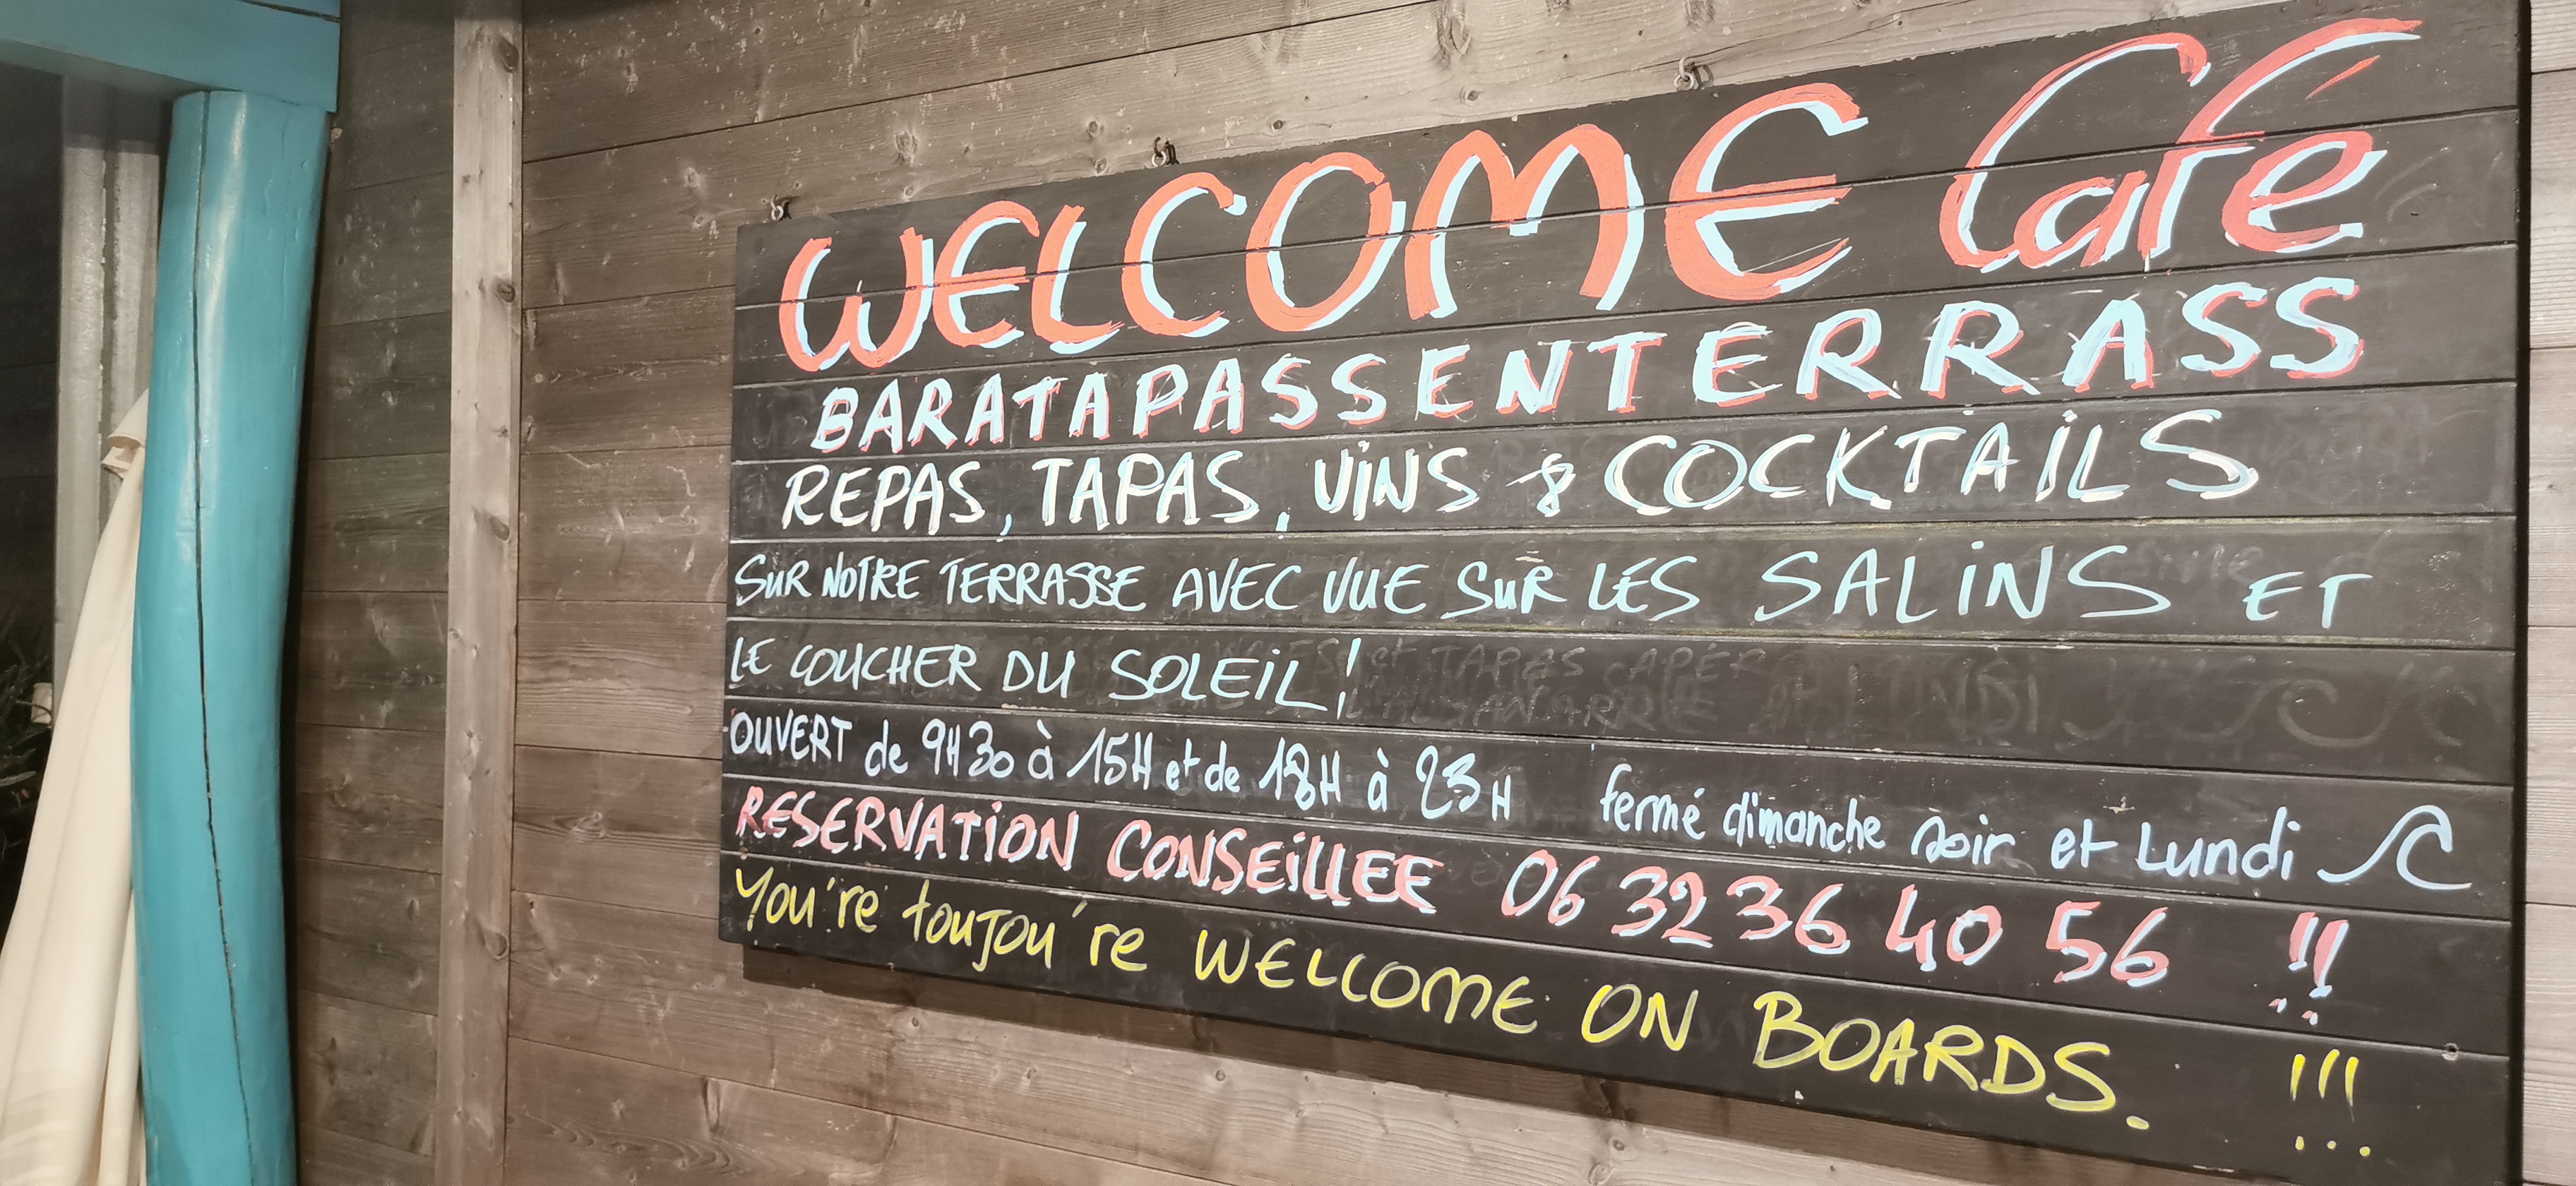 WELCOME Café
BARATAPASSENTERRASS
REPAS, TAPAS, ViNS & COCKTAiLS
SUR NOTRE TERRASSE AVEC VUE SUR LES SALiNS ET
LE COUCHER DU SOLEiL!
OUVERT de 9H30 à 15H et de 18H à 23H fermé dimanche soir et Lundi
RESERVATiON CONSEiLLEE 06 32 36 40 56 !!
You're toujou're WELCOME ON BOARDS. !!!